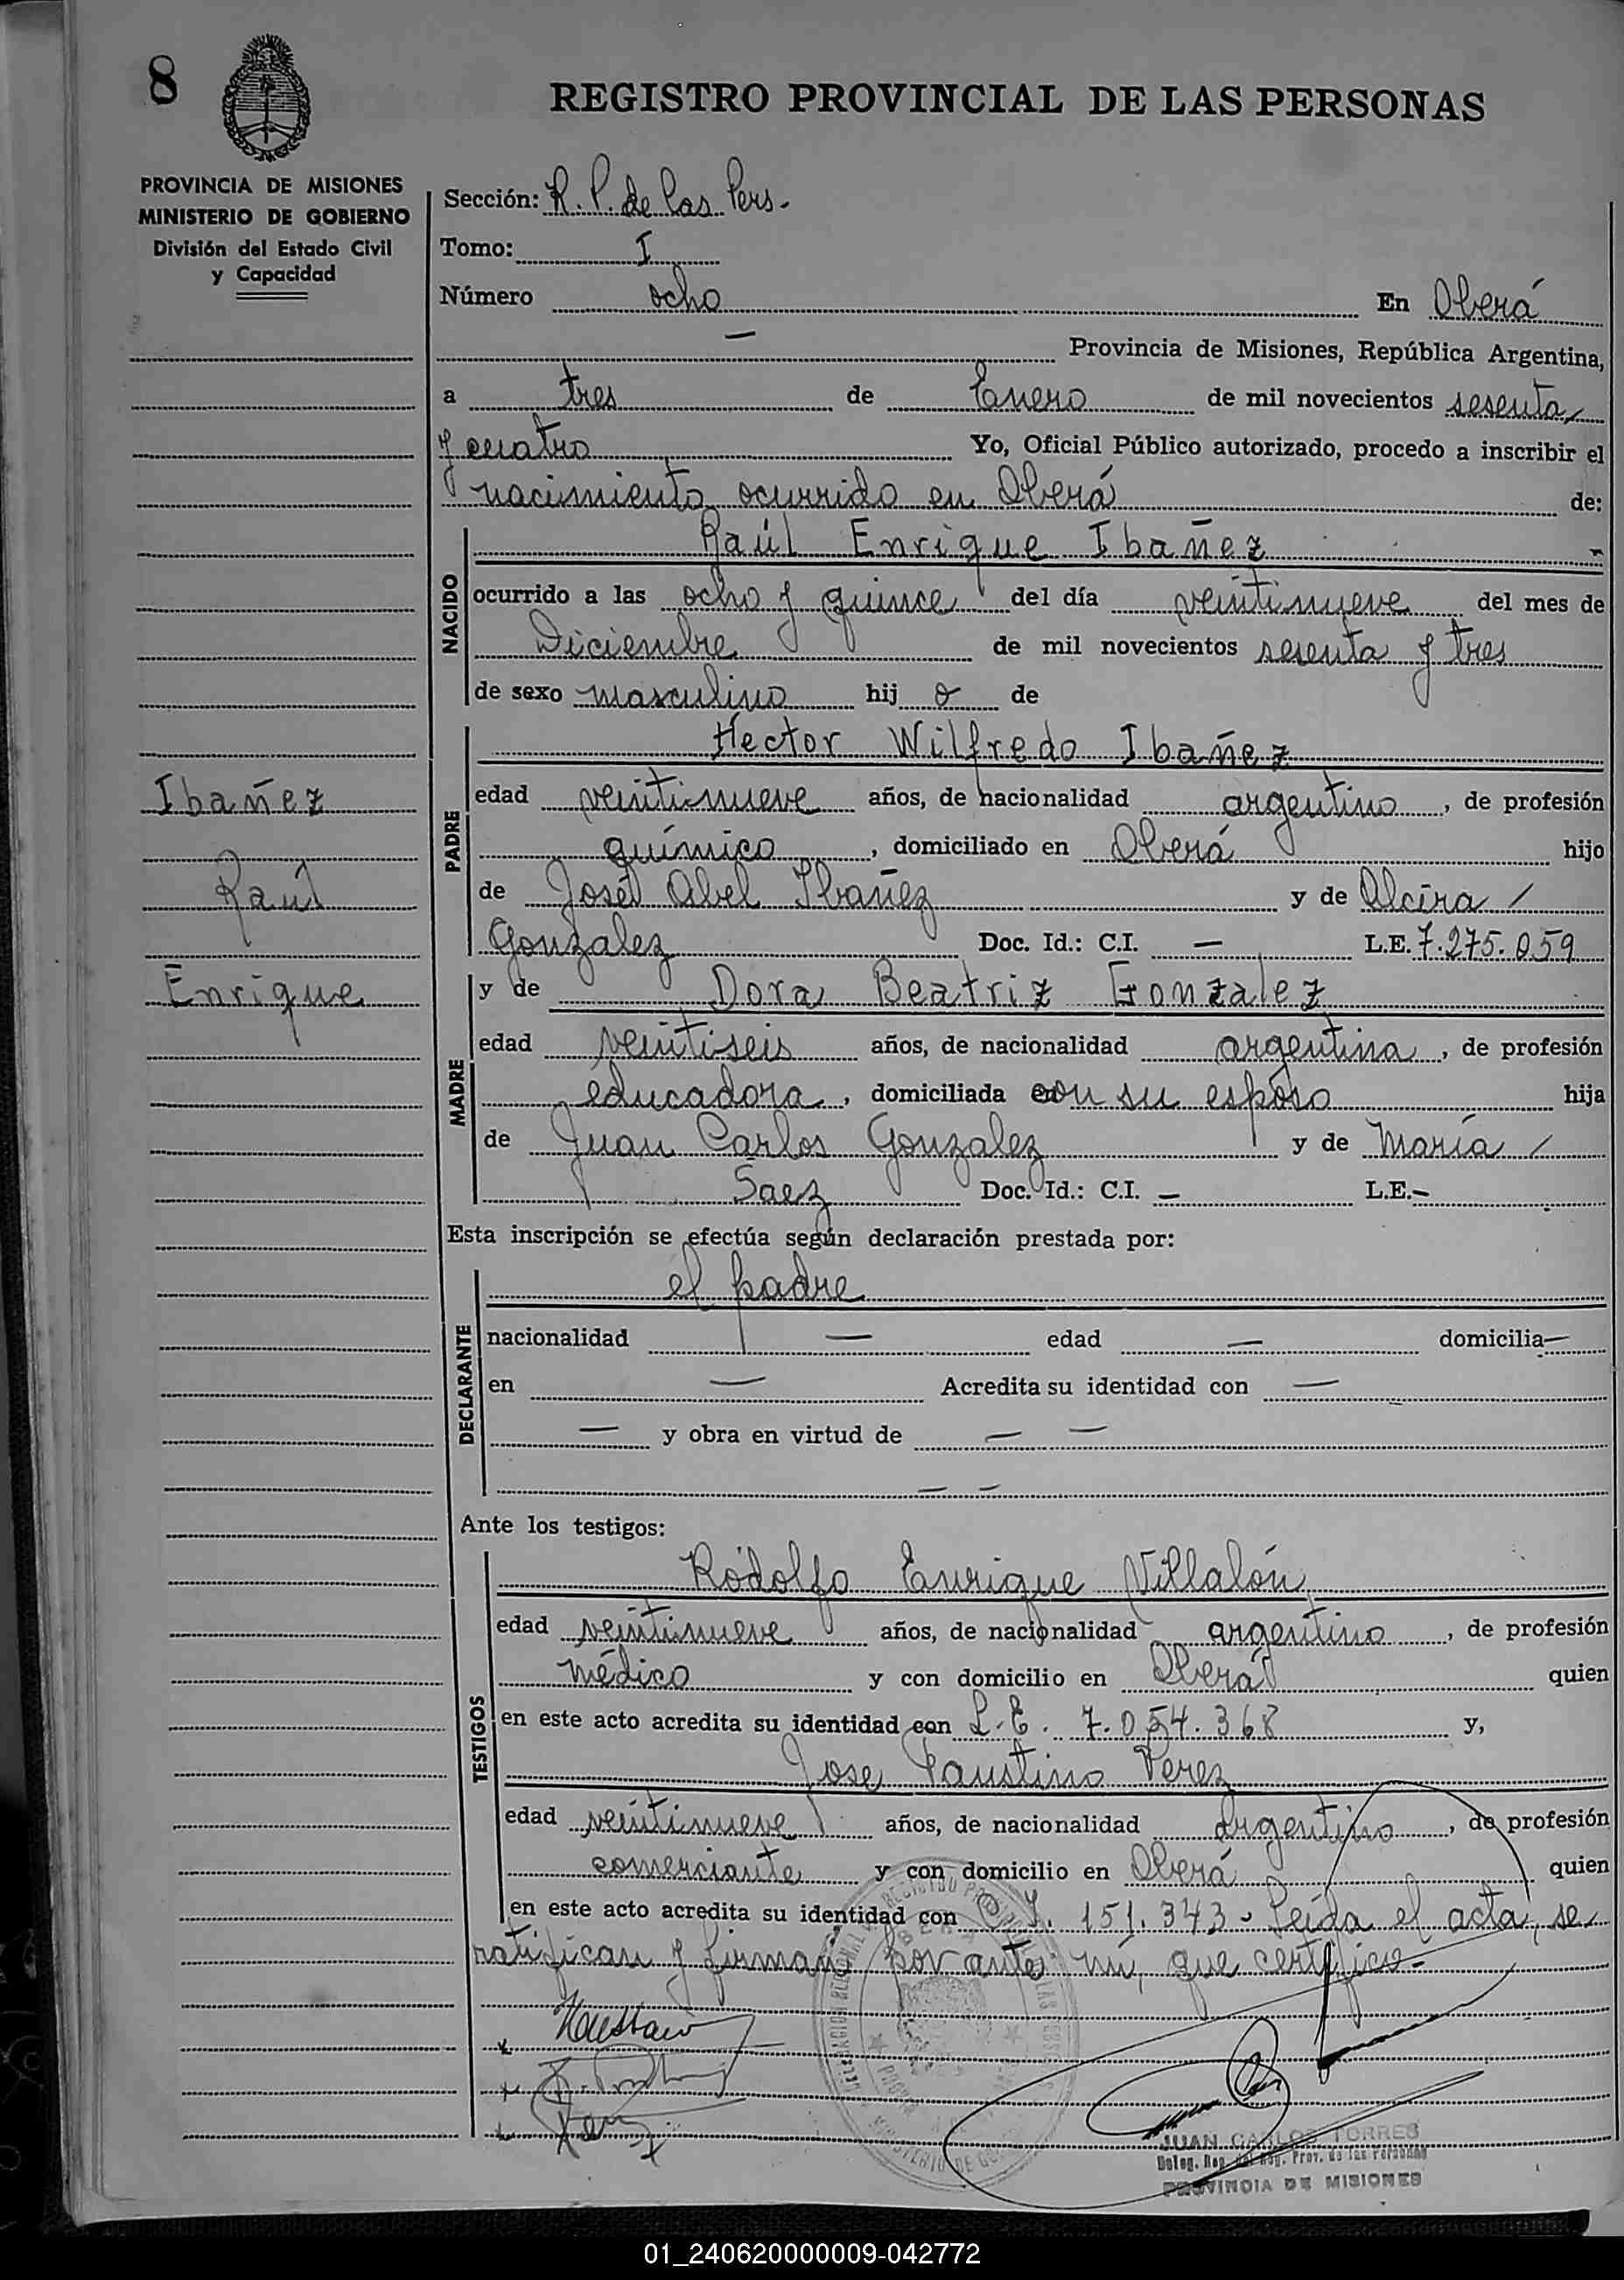 8
REGISTRO PROVINCIAL DE LAS PERSONAS
PROVINCIA DE MISIONES
MINISTERIO DE GOBIERNO
División del Estado Civil
y Capacidad
Sección: R. P. de las Pers.
Tomo: I
Número ocho En Oberá
— Provincia de Misiones, República Argentina,
a tres de Enero de mil novecientos sesenta
y cuatro Yo, Oficial Público autorizado, procedo a inscribir el
nacimiento ocurrido en Oberá de:
NACIDO
Raúl Enrique Ibañez
ocurrido a las ocho y quince del día veintinueve del mes de
Diciembre de mil novecientos sesenta y tres
de sexo masculino hij o de
PADRE
Hector Wilfredo Ibañez
Ibañez
Raúl
Enrique
edad veintinueve años, de nacionalidad argentino, de profesión
químico, domiciliado en Oberá hijo
de José Abel Ibañez y de Alcira /
Gonzalez Doc. Id.: C.I. — L.E. 7.275.059
MADRE
y de Dora Beatriz Gonzalez
edad veintiseis años, de nacionalidad argentina, de profesión
educadora, domiciliada con su esposo hija
de Juan Carlos Gonzalez y de María /
Saez Doc. Id.: C.I. — L.E. —
Esta inscripción se efectúa según declaración prestada por:
DECLARANTE
el padre
nacionalidad — edad — domicilia —
en — Acredita su identidad con —
— y obra en virtud de — —
— —
Ante los testigos:
TESTIGOS
Rodolfo Enrique Villalón
edad veintinueve años, de nacionalidad argentino, de profesión
médico y con domicilio en Oberá quien
en este acto acredita su identidad con L.E. 7.054.368 y,
Jose Faustino Perez
edad veintinueve años, de nacionalidad argentino, de profesión
comerciante y con domicilio en Oberá quien
en este acto acredita su identidad con 151.343 - Leída el acta, se
ratifican y firman por ante mí, que certifico.-
JUAN CARLOS TORRES
PROVINCIA DE MISIONES
01_240620000009-042772